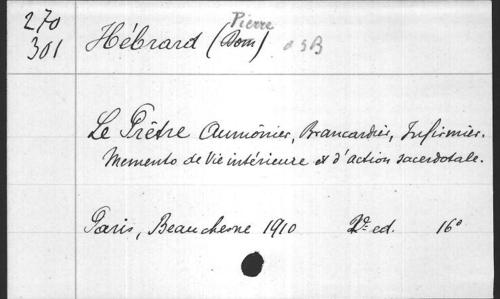 270
301
Pierre
Hébrard (Dom) OSB
Le Prêtre Aumônier, Brancardier, Infirmier.
Memento de Vie intérieure et d'action sacerdotale.
Paris, Beauchesne 1910 2e ed. 16°